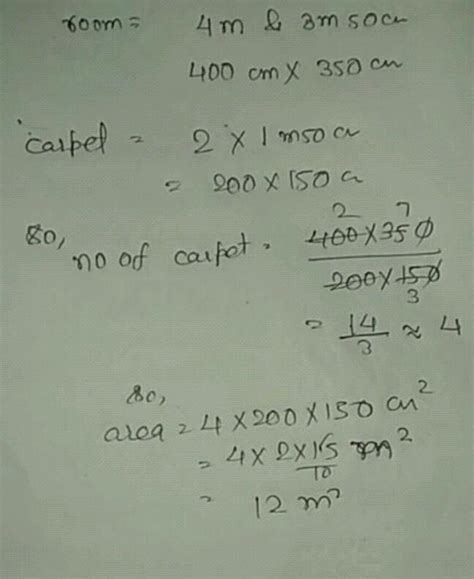 room = 4m & 3m 50cm
400 cm X 350 cm
carpet = 2 X 1 m50 cm
= 200 X 150 cm
So,
no of carpet = 400 X 350 / 200 X 150
2 7
3
= 14/3 ≈ 4
So,
area = 4 X 200 X 150 cm²
= 4 X 2 X 15/10 m²
= 12 m²